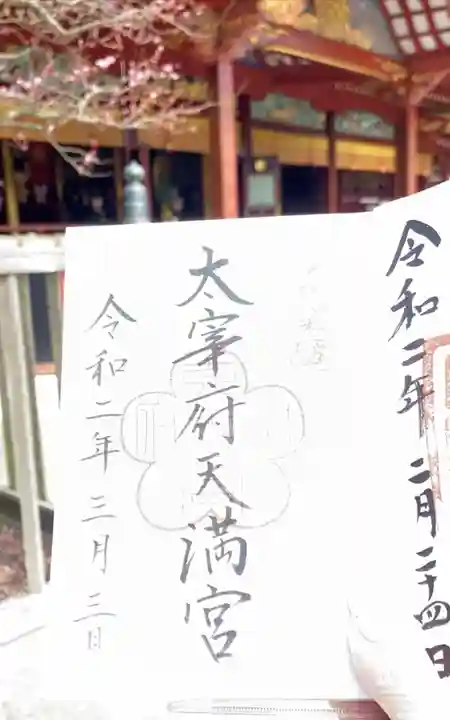 令和二年二月二十四日
太宰府天満宮
令和二年三月三日